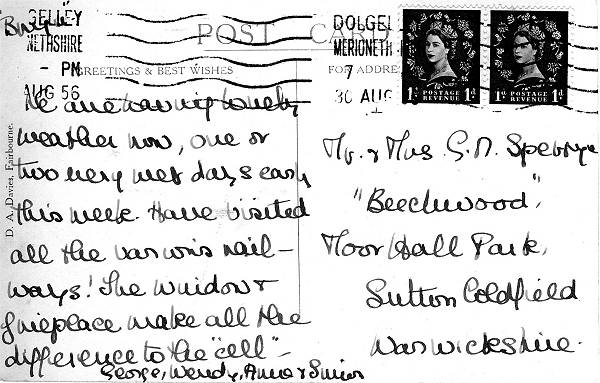 "Bryn
GELLEY
NETHSHIRE
- PM
AUG 56
DOLGEL
MERIONETH
7
30 AUG
POST CARD
GREETINGS & BEST WISHES
FOR ADDRE
1D POSTAGE REVENUE 1D
1D POSTAGE REVENUE 1D
D. A. Davies, Fairbourne.
We are having lovely
weather now, one or
two very wet days early
this week. Have visited
all the various rail-
ways! The window &
fireplace make all the
difference to the "cell" -
George, Wendy, Anne &
Mr. & Mrs G. N.
"Beechwood",
Moor Hall Park,
Sutton Coldfield
Warwickshire.